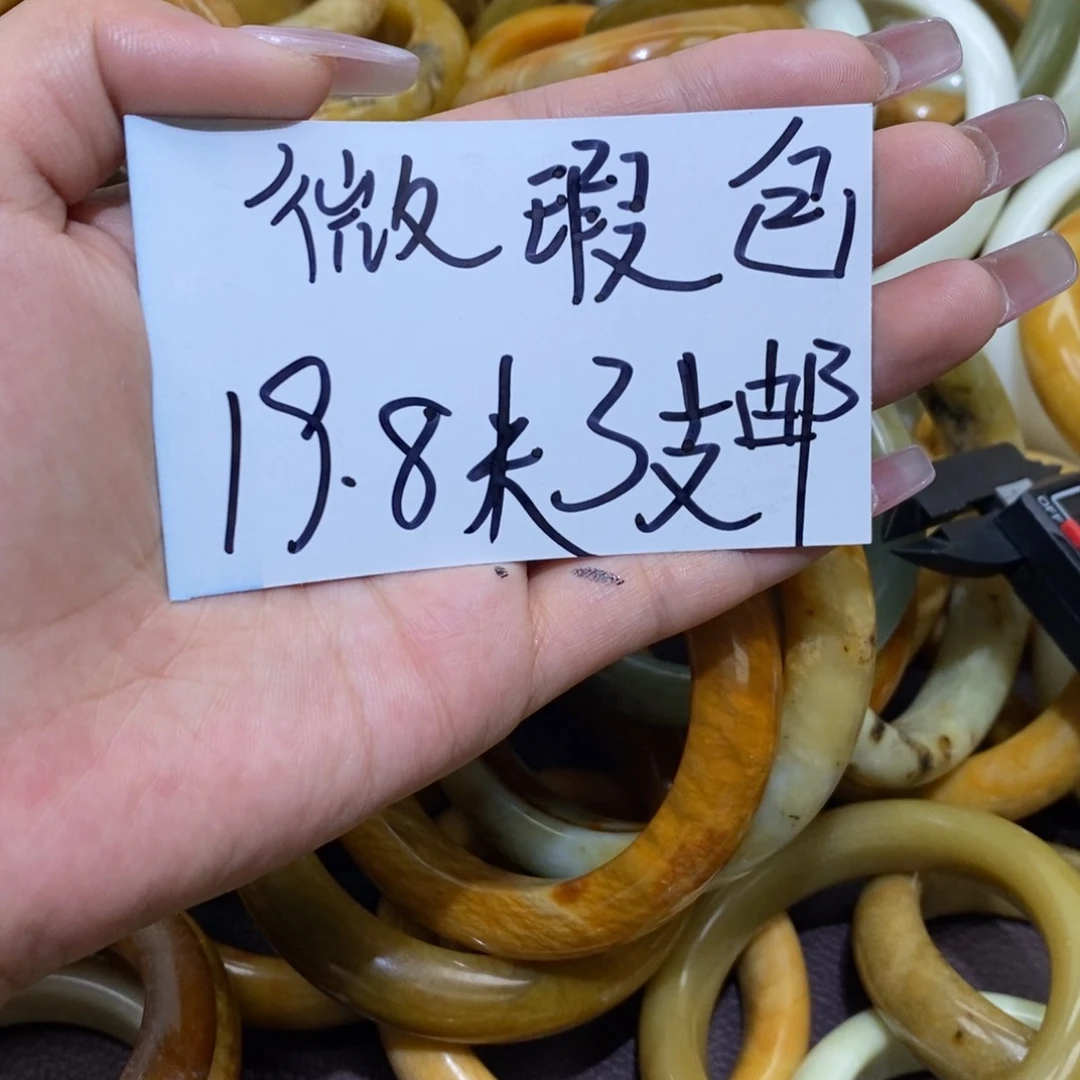 微瑕包
19.8米3支邮
OFF